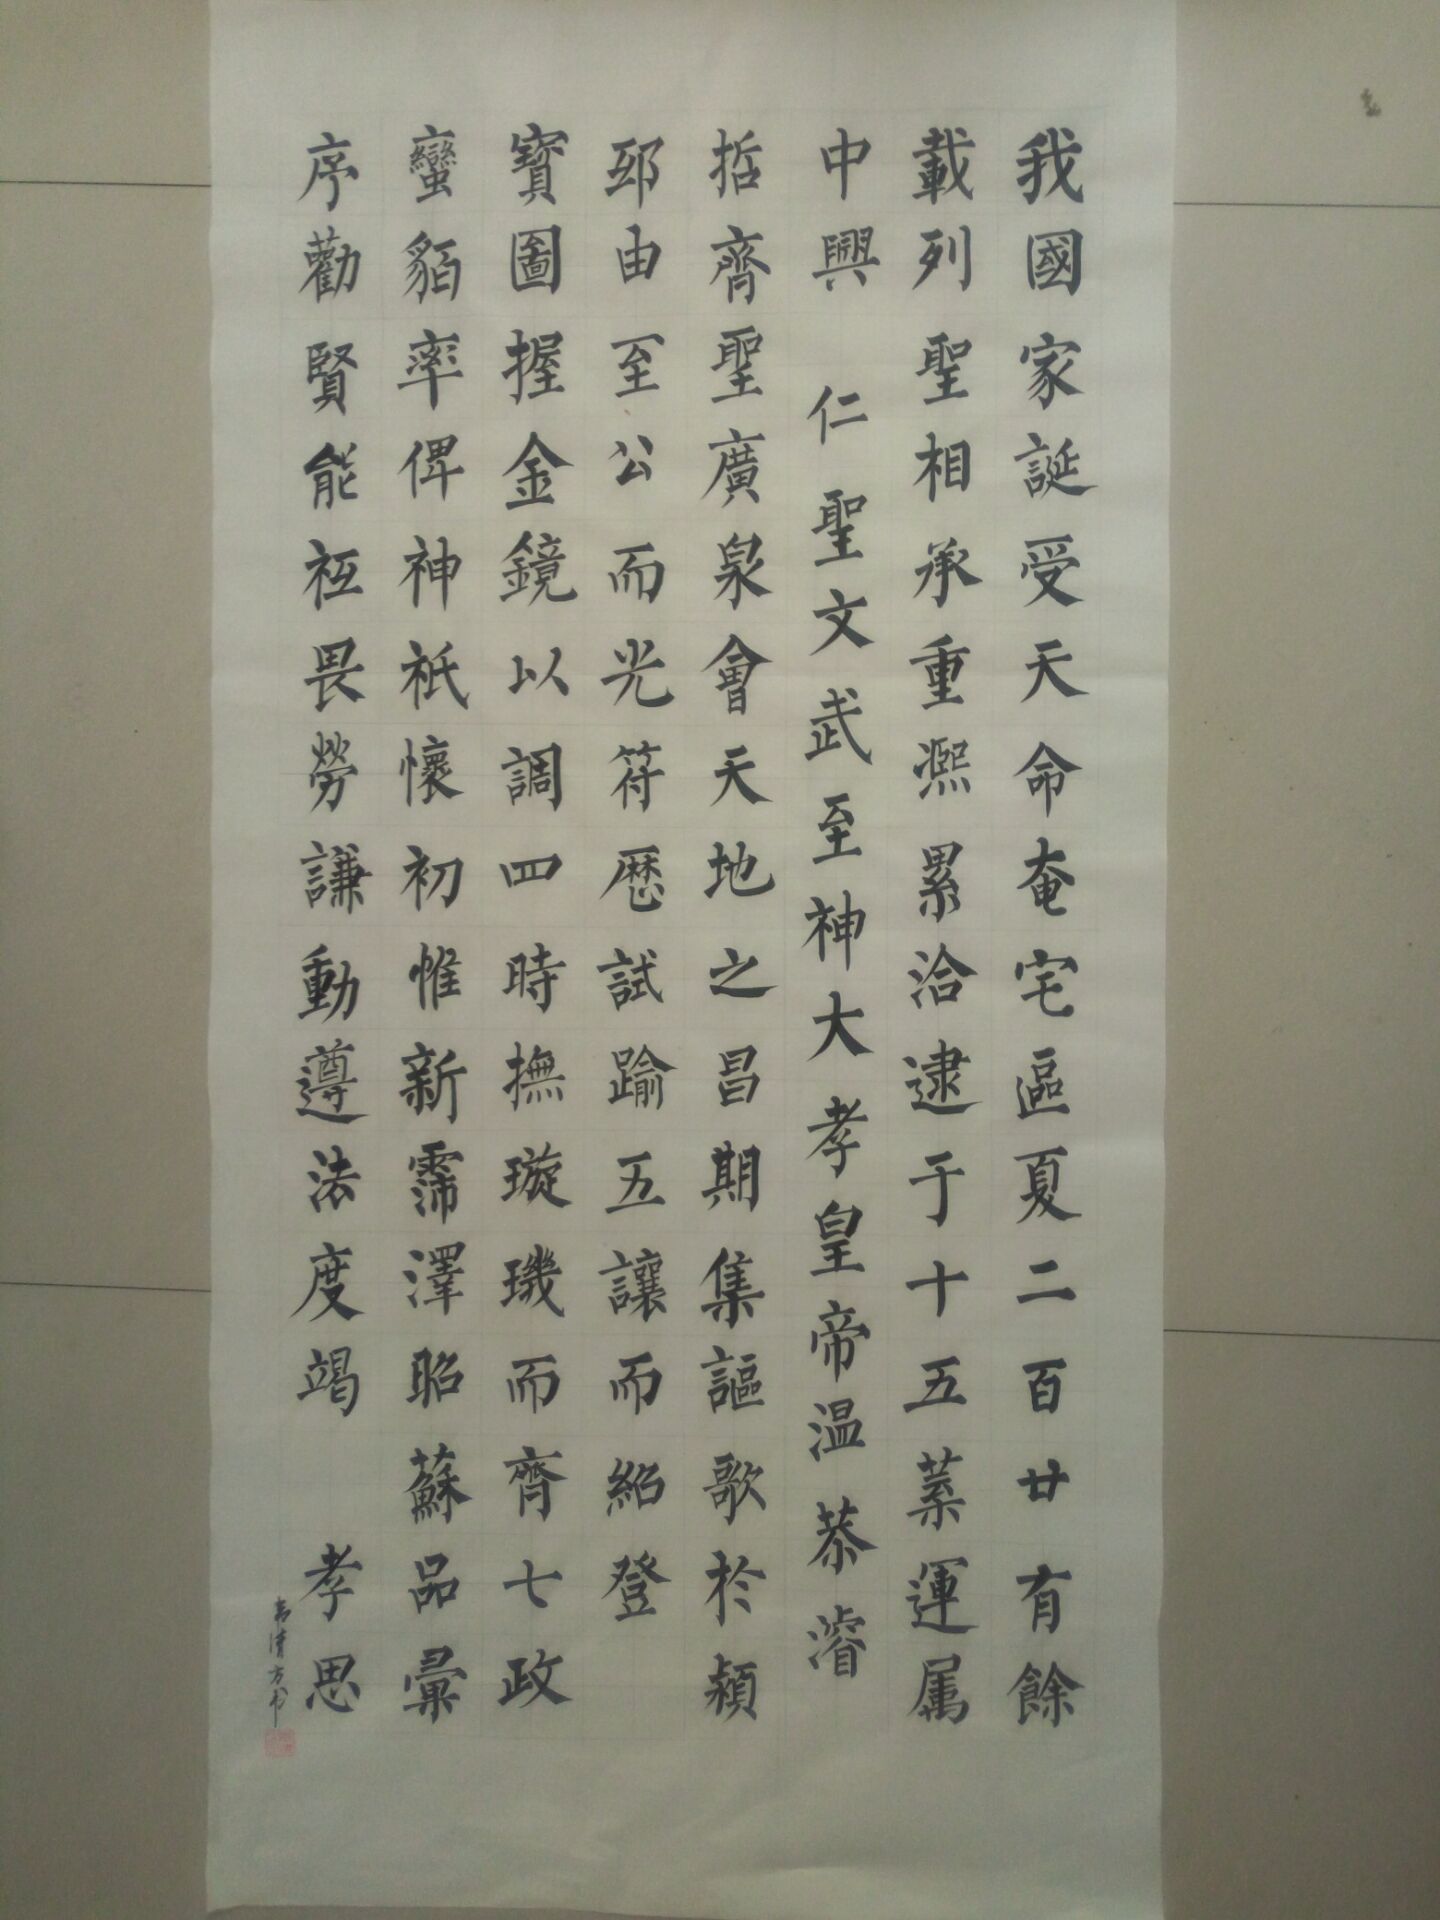 我國家誕受天命奄宅區夏二百廿有餘
載列聖相承重熙累洽逮于十五葉運属
中興仁聖文武至神大孝皇帝温恭濬
哲齊聖廣泉會天地之昌期集謳歌於潁
邸由至公而光符歷試踰五讓而紹登
寶圖握金鏡以調四時撫璇璣而齊七政
蠻貊率俾神祇懷初惟新霈澤昭蘇品彙
序勸賢能祗畏勞謙動遵法度竭孝思